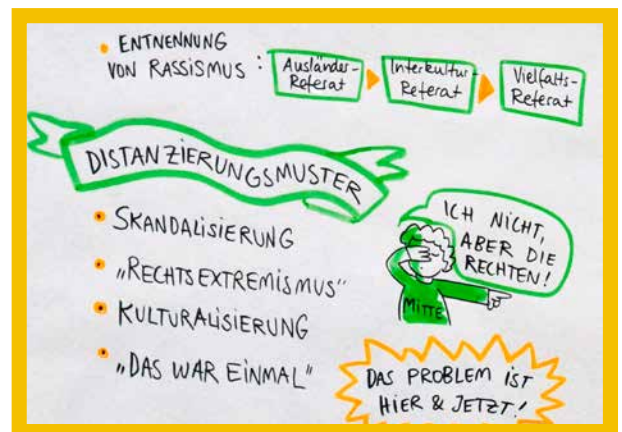 • ENTNENNUNG
VON RASSISMUS :
Ausländer-
Referat
Interkultur-
Referat
Vielfalts-
Referat
DISTANZIERUNGSMUSTER
• SKANDALISIERUNG
• „RECHTSEXTREMISMUS“
• KULTURALISIERUNG
• „DAS WAR EINMAL“
ICH NICHT,
ABER DIE
RECHTEN!
MITTE
DAS PROBLEM IST
HIER & JETZT!